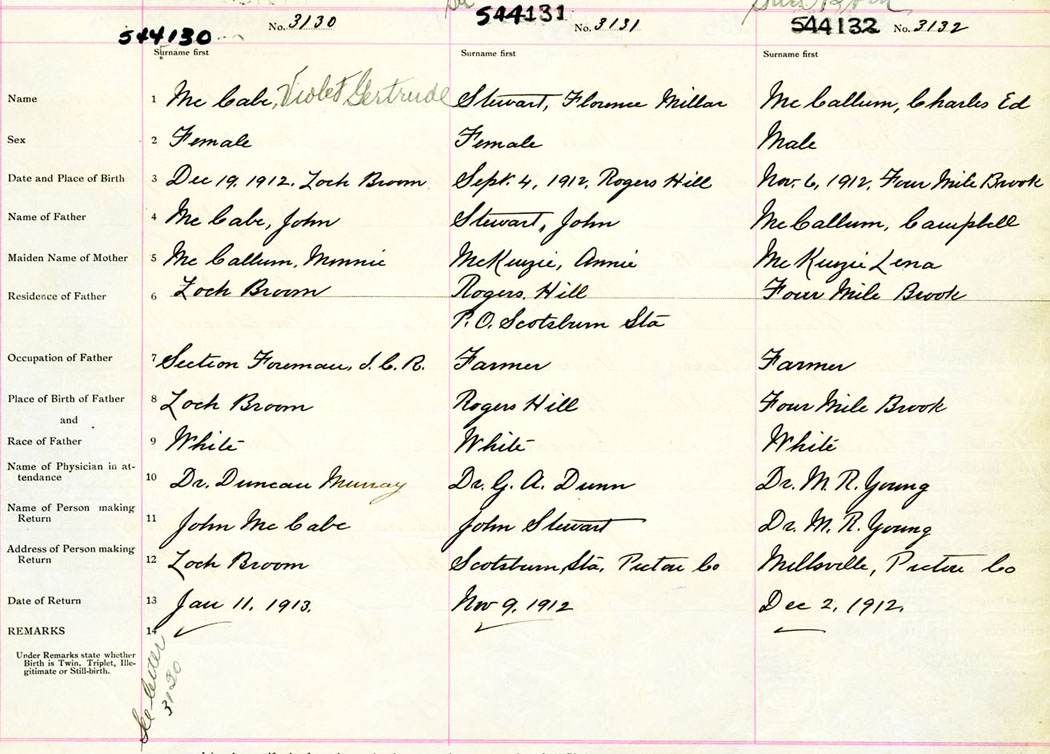 544130 No. 3130 544131 No. 3131 544132 No. 3132
Surname first Surname first Surname first
Name 1 Mc Cabe, Violet Gertrude Stewart, Florence Millar Mc Callum, Charles Ed
Sex 2 Female Female Male
Date and Place of Birth 3 Dec 19, 1912. Loch Broom Sept. 4, 1912, Rogers Hill Nov. 6, 1912, Four Mile Brook
Name of Father 4 Mc Cabe, John Stewart, John McCallum, Campbell
Maiden Name of Mother 5 Mc Callum, Minnie McKenzie, Annie McKenzie Lena
Residence of Father 6 Loch Broom Rogers Hill Four Mile Brook
P.O. Scotsburn Sta
Occupation of Father 7 Section Foreman, I.C.R. Farmer Farmer
Place of Birth of Father 8 Loch Broom Rogers Hill Four Mile Brook
and
Race of Father 9 White White White
Name of Physician in at-
tendance 10 Dr. Duncan Murray Dr. G. A. Dunn Dr. M. R. Young
Name of Person making
Return 11 John Mc Cabe John Stewart Dr. M. R. Young
Address of Person making
Return 12 Loch Broom Scotsburn Sta, Pictou Co Millsville, Pictou Co
Date of Return 13 Jan 11, 1913. Nov 9, 1912 Dec 2, 1912.
REMARKS 14
Under Remarks state whether
Birth is Twin, Triplet, Ille-
gitimate or Still-birth.
See letter
3130